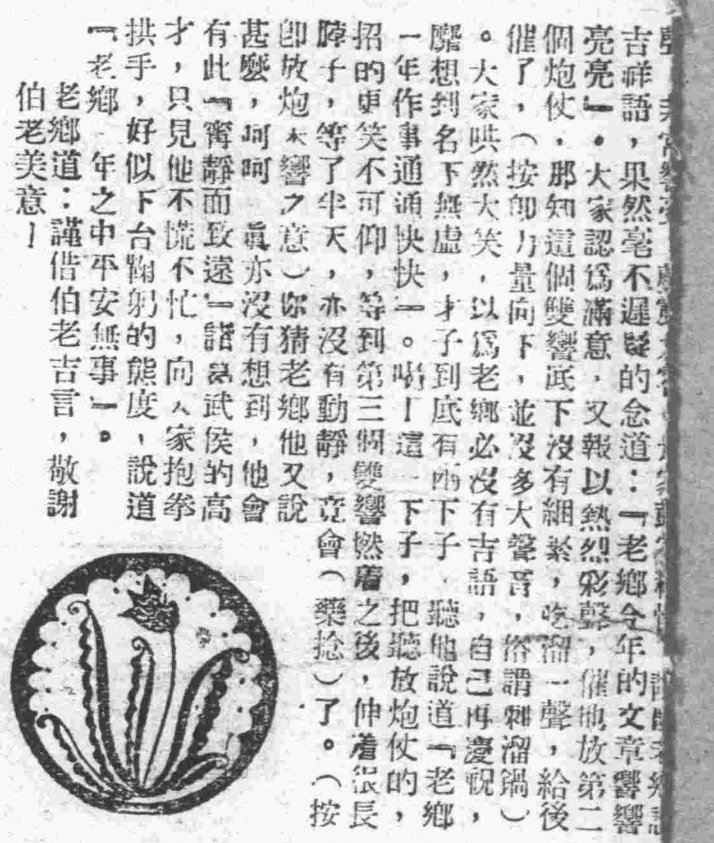 吉祥語，果然毫不遲疑的念道：『老鄉今年的文章響響
亮亮』。大家認爲滿意，又報以熱烈彩聲，催他放第二
個炮仗，那知這個雙響底下沒有綑緊，吃溜一聲，給後
催了，（按卽力量向下，並沒多大聲音，俗謂刺溜鍋）
。大家哄然大笑，以爲老鄉必沒有吉語，自己再慶祝，
靡想到名下無虛，才子到底有兩下子，聽他說道『老鄉
一年作事通通快快』。喝！這一下子，把聽放炮仗的，
招的更笑不可仰，等到第三個雙響撚着之後，伸着很長
脖子，等了半天，亦沒有動靜，竟會（藥捻）了。（按
卽放炮未響之意）你猜老鄉他又說
甚麼，呵呵 眞亦沒有想到，他會
有此『寧靜而致遠』諸葛武侯的高
才，只見他不慌不忙，向大家抱拳
拱手，好似下台鞠躬的態度，說道
『老鄉一年之中平安無事』。
老鄉道：謹借伯老吉言，敬謝
伯老美意！